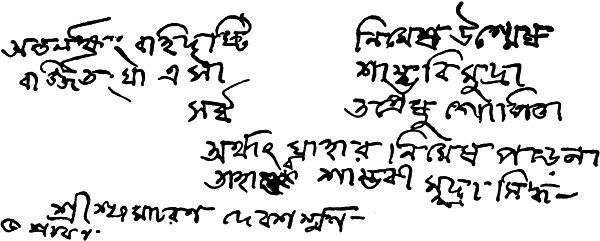 অন্তর্লক্ষ্যং বহির্দৃষ্টি নিমেষ উন্মেষ
বর্জ্জিত যা এসা শাম্ভবি মুদ্রা
সর্ব্ব তন্ত্রেষু গোপিতা
অর্থাৎ যাহার নিমেষ পড়েনা
তাহার শাম্ভবী মুদ্রা সিদ্ধ—
শ্রীশ্যামাচরণ দেবশর্ম্মণ—